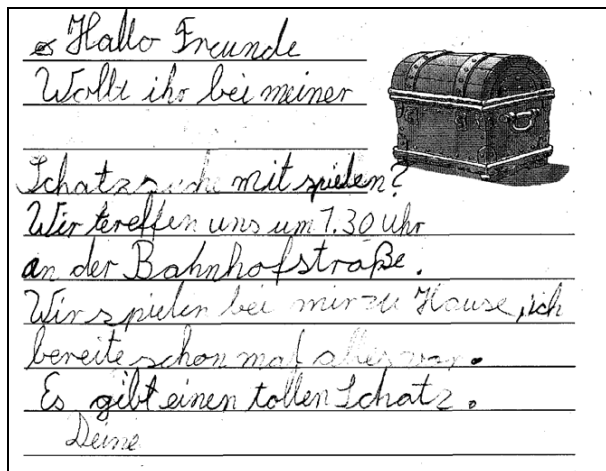 Hallo Freunde
Wollt ihr bei meiner
Schatzsuche mitspielen?
Wir tereffen uns um 1.30 Uhr
an der Bahnhofstraße.
Wir spielen bei mir zu Hause, ich
bereite schon mal alles vor.
Es gibt einen tollen Schatz.
Deine